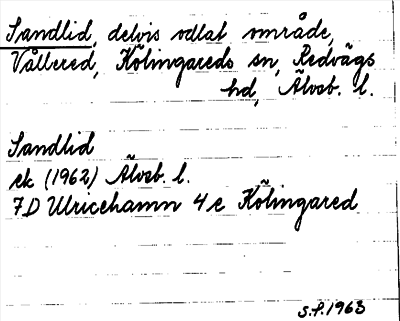 Sandlid, delvis odlat område,
Vållered, Kölingareds sn, Redvägs
hd, Älvsb. l.
Sandlid
ek (1962) Älvsb. l.
7D Ulricehamn 4e Kölingared
S.F. 1963